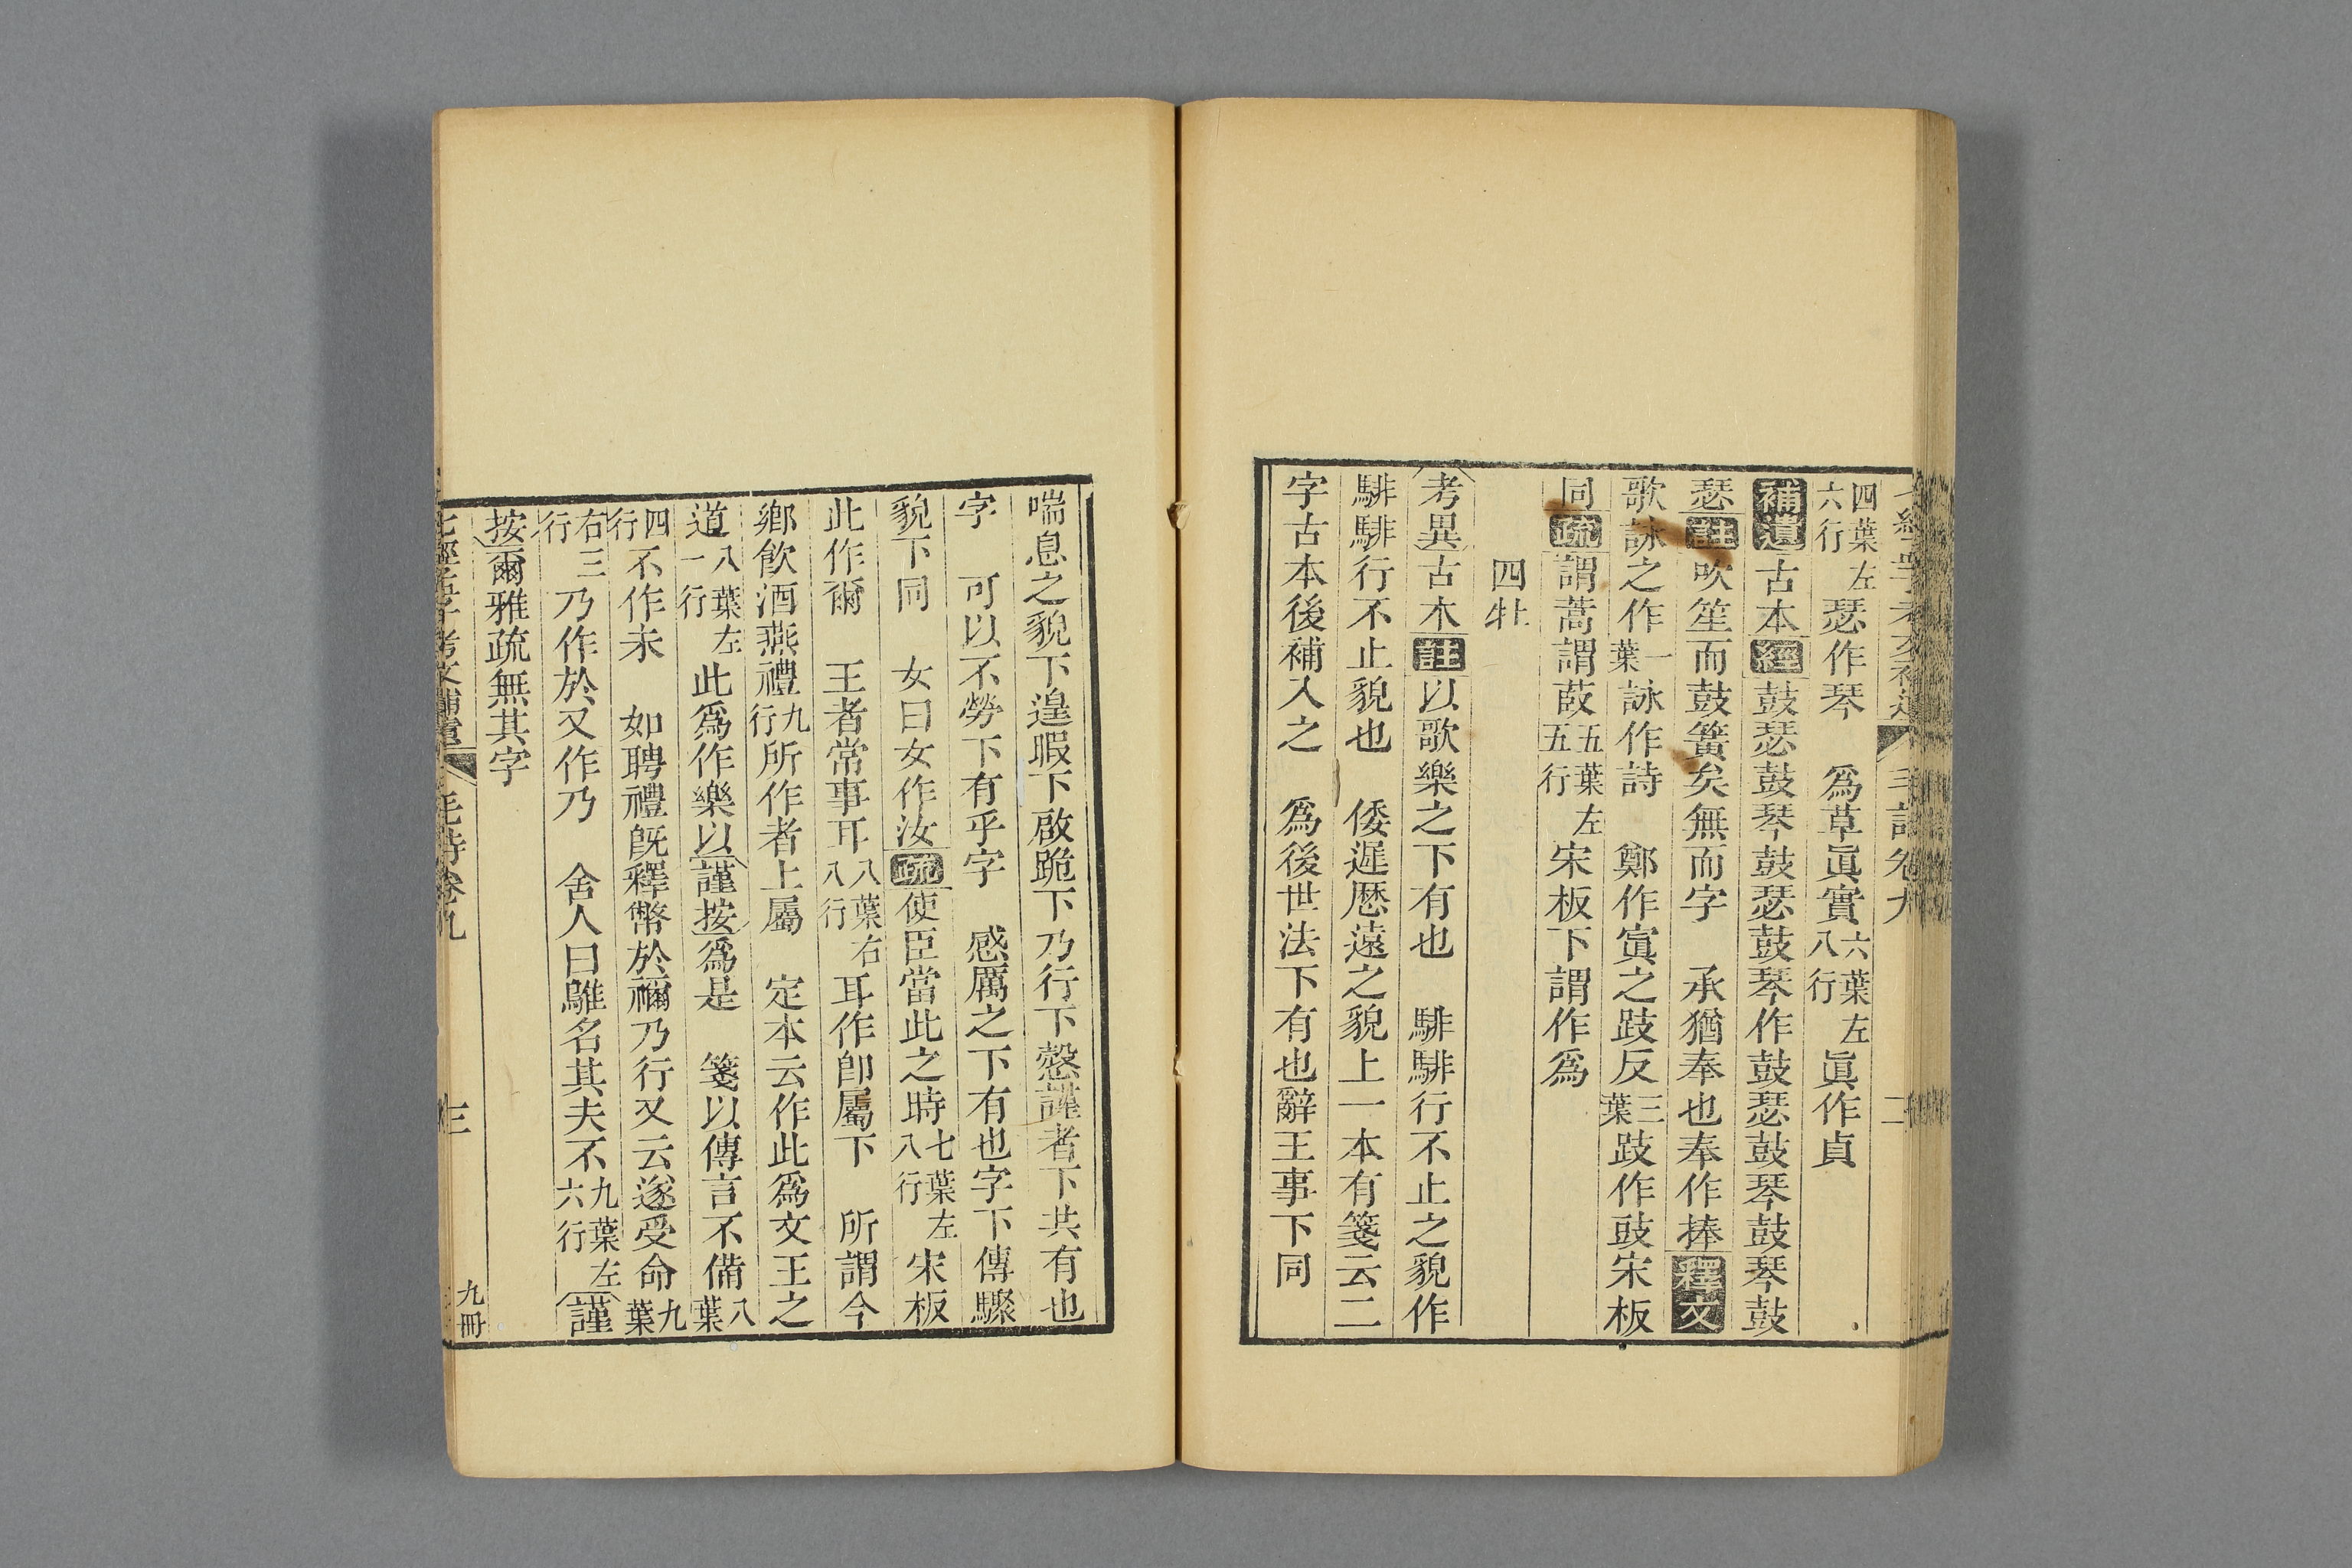 四葉左六行瑟作琴　爲草眞實六葉左八行眞作貞
補遺古本經鼓瑟鼓琴鼓瑟鼓琴作鼓瑟鼓琴鼓琴鼓
瑟註吹笙而鼓簧矣無而字　承猶奉也奉作捧釋文
歌詠之作一葉詠作詩　鄭作寘之跂反三葉跂作豉宋板
同疏謂蒿謂菣五葉左五行宋板下謂作爲
四牡
考異古本註以歌樂之下有也　騑騑行不止之貌作
騑騑行不止貌也　倭遲歷遠之貌上一本有箋云二
字古本後補入之　爲後世法下有也辭王事下同
喘息之貌下遑暇下啟跪下乃行下慤謹者下共有也
字　可以不勞下有乎字　感厲之下有也字下傳驟
貌下同　女曰女作汝疏使臣當此之時七葉左八行宋板
此作爾　王者常事耳八葉右八行耳作卽屬下　所謂今
鄉飮酒燕禮九行所作者上屬　定本云作此爲文王之
道八葉左一行此爲作樂以謹按爲是　箋以傳言不備八葉
四行不作未　如聘禮旣釋幣於禰乃行又云遂受命九葉
右三行乃作於又作乃　舍人曰鵻名其夫不九葉左六行謹
按爾雅疏無其字
毛詩卷九
三
九冊